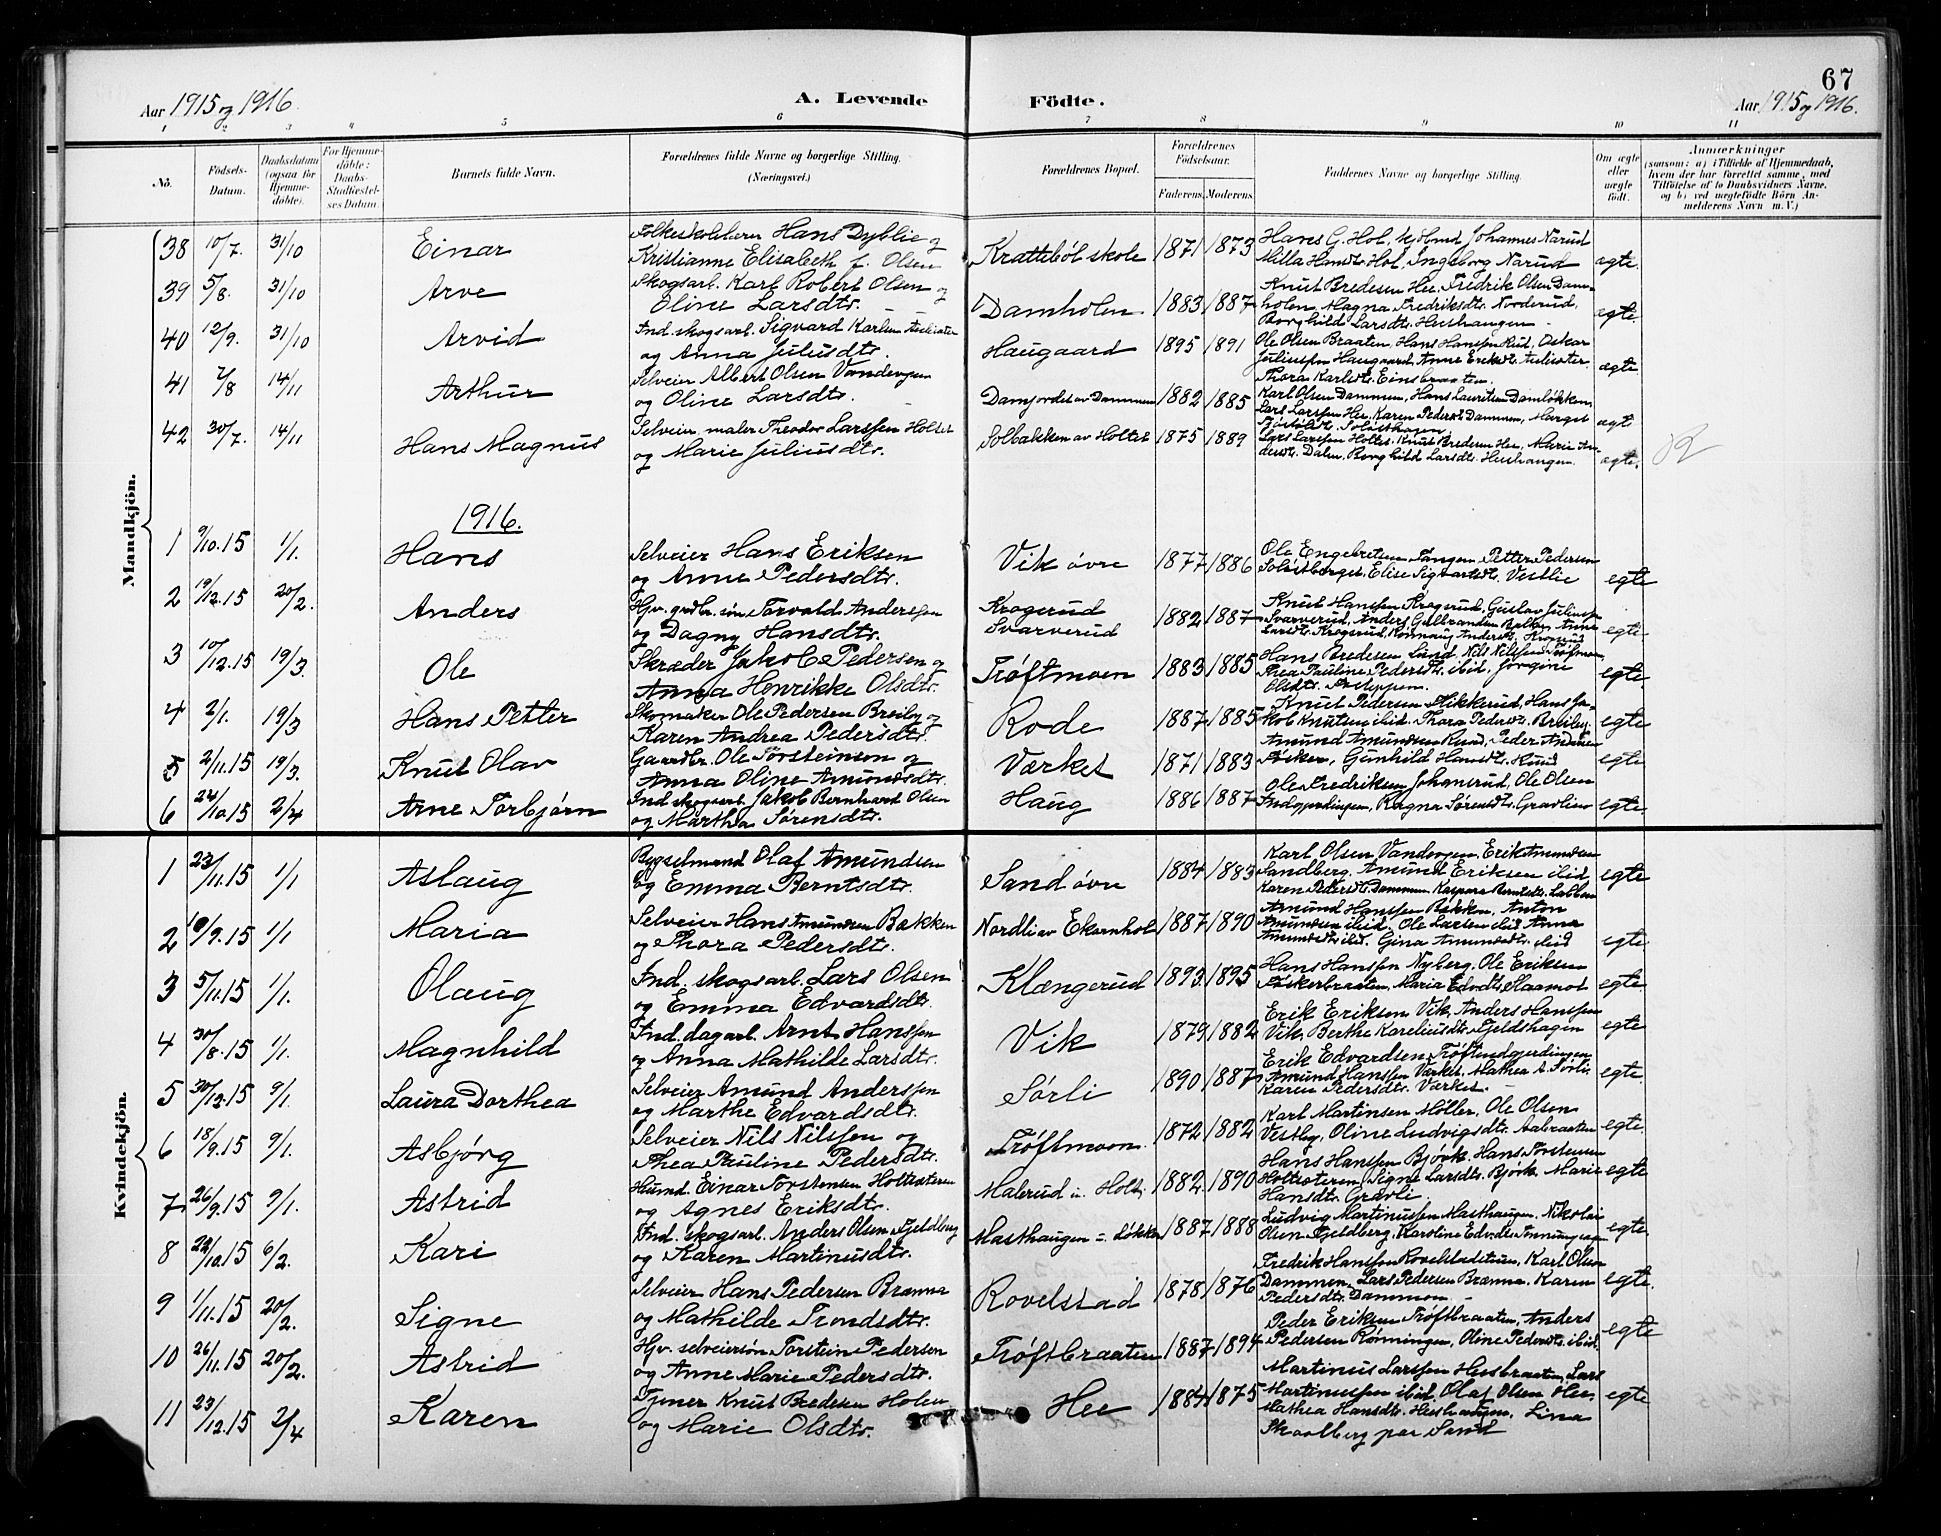 67
Aar 1915 og 1916. A. Levende Födte. Aar 1915 og 1916.
1 2 3 4 5 6 7 8 9 10 11
No. Födsels-Datum. Daabsdatum (ogsaa for Hjemmedöbte). For Hjemmedöbte: Daabs-Stadfæstelses Datum. Barnets fulde Navn. Forældrenes fulde Navne og borgerlige Stilling. (Næringsvei.) Forældrenes Bopæl. Forældrenes Födselsaar. Faderens. Moderens. Faddernes Navne og borgerlige Stilling. Om ægte eller uægte födt. Anmærkninger (saasom: a) i Tilfælde af Hjemmedaab, hvem der har forrettet samme, med Tilföielse af to Daabsvidners Navne, og b) ved uægtefödte Börn Anmelderens Navn m. V.)
Mandkjön.
38 10/7. 31/10 Einar Folkeskolelærer Hans Dyblie og Kristianne Elisabeth f. Olsen Krattebøl skole 1871 1873 Hans G. Hol, Johannes Narud Milla Hansdtr. Hol, Ingeborg Narud ægte.
39 5/8. 31/10 Arve Skogsarb. Karl Robert Olsen og Oline Larsdtr. Damholen 1883 1887 Knut Bredesen Hee, Fredrik Olsen Damholen, Magna Fredriksdtr. Norderud, Borghild Larsdtr. Heehaugen ægte.
40 12/9. 31/10 Arvid Ind. skogsarb. Sigvard Karlsen og Anna Juliusdtr. Haugaard 1895 1891 Ole Olsen Braaten, Hans Hanssen Rud, Oskar Juliussen Haugaard, Anne Eriksdtr. Thora Karlsdtr. Einsbraaten. ægte
41 7/8 14/11 Arthur Selveier Albert Olsen Vandevgen og Oline Larsdtr. Damjordet av Dammen 1882 1885 Karl Olsen Dammen, Hans Lauritsen Damløkken, Lars Larssen Hee, Karen Pedersdtr. Dammen, Margit ægte
42 30/7. 14/11 Hans Magnus Selveier, maler Theodor Larssen Holtet og Marie Juliusdtr. Solbakken av Holtet 1875 1889 Lars Larssen Holtet, Knut Bredesen Hee, Marie Andersdtr. Dalen, Borghild Larsdtr. Heehaugen. ægte.
1916.
1 9/10.15 1/1. Hans Selveier Hans Eriksen og Anne Pedersdtr. Vik øvre 1877 1886 Ole Engebretsen Tangen, Petter Pedersen Elise Sigvartsdtr. Vestlie egte
2 19/12.15 20/2. Anders Hjv. grdbr. søn Torvald Anderssen og Dagny Hansdtr. Krogsrud Svarverud 1882 1887 Knut Hanssen Krogsrud, Gustav Juliussen Svarverud, Anders Gulbrandsen Anna Larsdtr. Krogsrud, Rønnaug Andersdtr. Krogsrud egte
3 10/12.15 19/3. Ole Skræder Jakob Pedersen og Anna Henrikke Olsdtr. Trøftmoen 1883 1885 Hans Bredesen Lund, Nils Nilssen Trøftmoen, Thea Pauline Pedersdtr. ibid, Jørgine Olsdtr. egte.
4 2/1. 19/3 Hans Petter Skomaker Ole Pedersen Breiby og Karen Andrea Pedersdtr. Rode 1887 1885 Knut Pedersen Hikkerud, Hans Jakob Knutsen ibid, Thora Pedersdtr. Breiby. egte
5 2/11.15 19/3. Knut Olav Gaardbr. Ole Torsteinsen og Anna Oline Amundsdtr. Værket 1871 1883 Amund Amundsen Ruud, Peder Andersen Fosker, Gunhild Hansdtr. Ruud egte
6 24/10.15 2/4 Arne Torbjørn Ind. skogsarb. Jakob Bernhard Olsen og Martha Sørensdtr. Haug 1886 1887 Ole Fredriksen Johansrud, Ole Olsen Ragna Sørensdtr. Gravlien egte.
Kvindekjön.
1 23/11.15 1/1 Aslaug Bygselmand Olaf Amundsen og Emma Berntsdtr. Sand øvre 1884 1883 Karl Olsen Vandevgen, Erik Amundsen Sandberg, Amund Eriksen ibid, Karen Pedersdtr. Dammen, Kaspara Berntsdtr. egte
2 10/9.15 1/1 Maria Selveier Hans Amundsen Bakken og Thora Pedersdtr. Nordli av Ekornhol 1887 1890 Amund Hanssen Bakken, Anton Amundsen ibid, Ole Larsen ibid, Anna Amundsdtr. ibid, Gina Amundsdtr. ibid egte
3 5/11.15 1/1. Olaug Ind. skogsarb. Lars Olsen og Emma Edvardsdtr. Klængerud 1893 1895 Hans Hanssen Nyberg, Ole Eriksen Foskerbraaten, Maria Edvdtr. Slaamot egte
4 30/8.15 1/1. Magnhild Ind. dagarb. Arnt Hanssen og Anna Mathilde Larsdtr. Vik 1879 1882 Erik Eriksen Vik, Anders Hanssen Vik, Berthe Kareliusdtr. Fjeldshagen egte
5 30/12.15 9/1. Laura Dorthea Selveier Amund Anderssen og Marthe Edvardsdtr. Sørli 1890 1887 Erik Edvardsen Trøftendgjerdingen Amund Hanssen Værket, Mathea A. Sørli, Karen Pedersdtr. Værket. egte
6 18/9.15 9/1. Asbjørg Selveier Nils Nilssen og Thea Pauline Pedersdtr. Trøftmoen. 1872 1882 Karl Martinsen Møller, Ole Olsen Vestby, Oline Ludvigsdtr. Aabraaten egte.
7 26/9.15 9/1. Astrid Husmd. Einar Torstensen Holtsæteren og Agnes Eriksdtr. Malerud u. Holt. 1882 1890 Hans Hanssen Bjørk, Hans Torstensen Holtsæteren, Signe Larsdtr. Bjørk, Marie Hansdtr. Gravli egte
8 22/10.15 6/2. Kari Ind. skogsarb. Anders Olsen Fjeldberg og Karen Martinusdtr. Masthaugen u. Løkken 1887 1888 Ludvig Martinussen Masthaugen, Nikolai Olsen Fjeldberg, Karoline Edvdtr. egte.
9 1/11.15 20/2. Signe Selveier Hans Pedersen Brænna og Mathilde Trondsdtr. Rovelstad 1878 1876 Fredrik Hanssen Karl Olsen Dammen, Lars Pedersen Brænna, Karen Pedersdtr. Dammen egte.
10 26/11.15 20/2. Astrid Hjv. selveiersøn Torstein Pedersen og Anne Marie Pedersdtr. Trøftbraaten 1887 1894 Peder Eriksen Trøftbraaten, Anders Pedersen Rønningen, Oline Pedersdtr. ibid. egte
11 23/12.15 2/4 Karen Tjener Knut Bredesen Holen og Marie Olsdtr. Hee 1884 1875 Martinus Larssen Heebraaten, Lars Martinussen ibid, Olaf Olsen Hee, Mathea Hansdtr. Heehaugen, Lina Skaalberg paa Sand egte